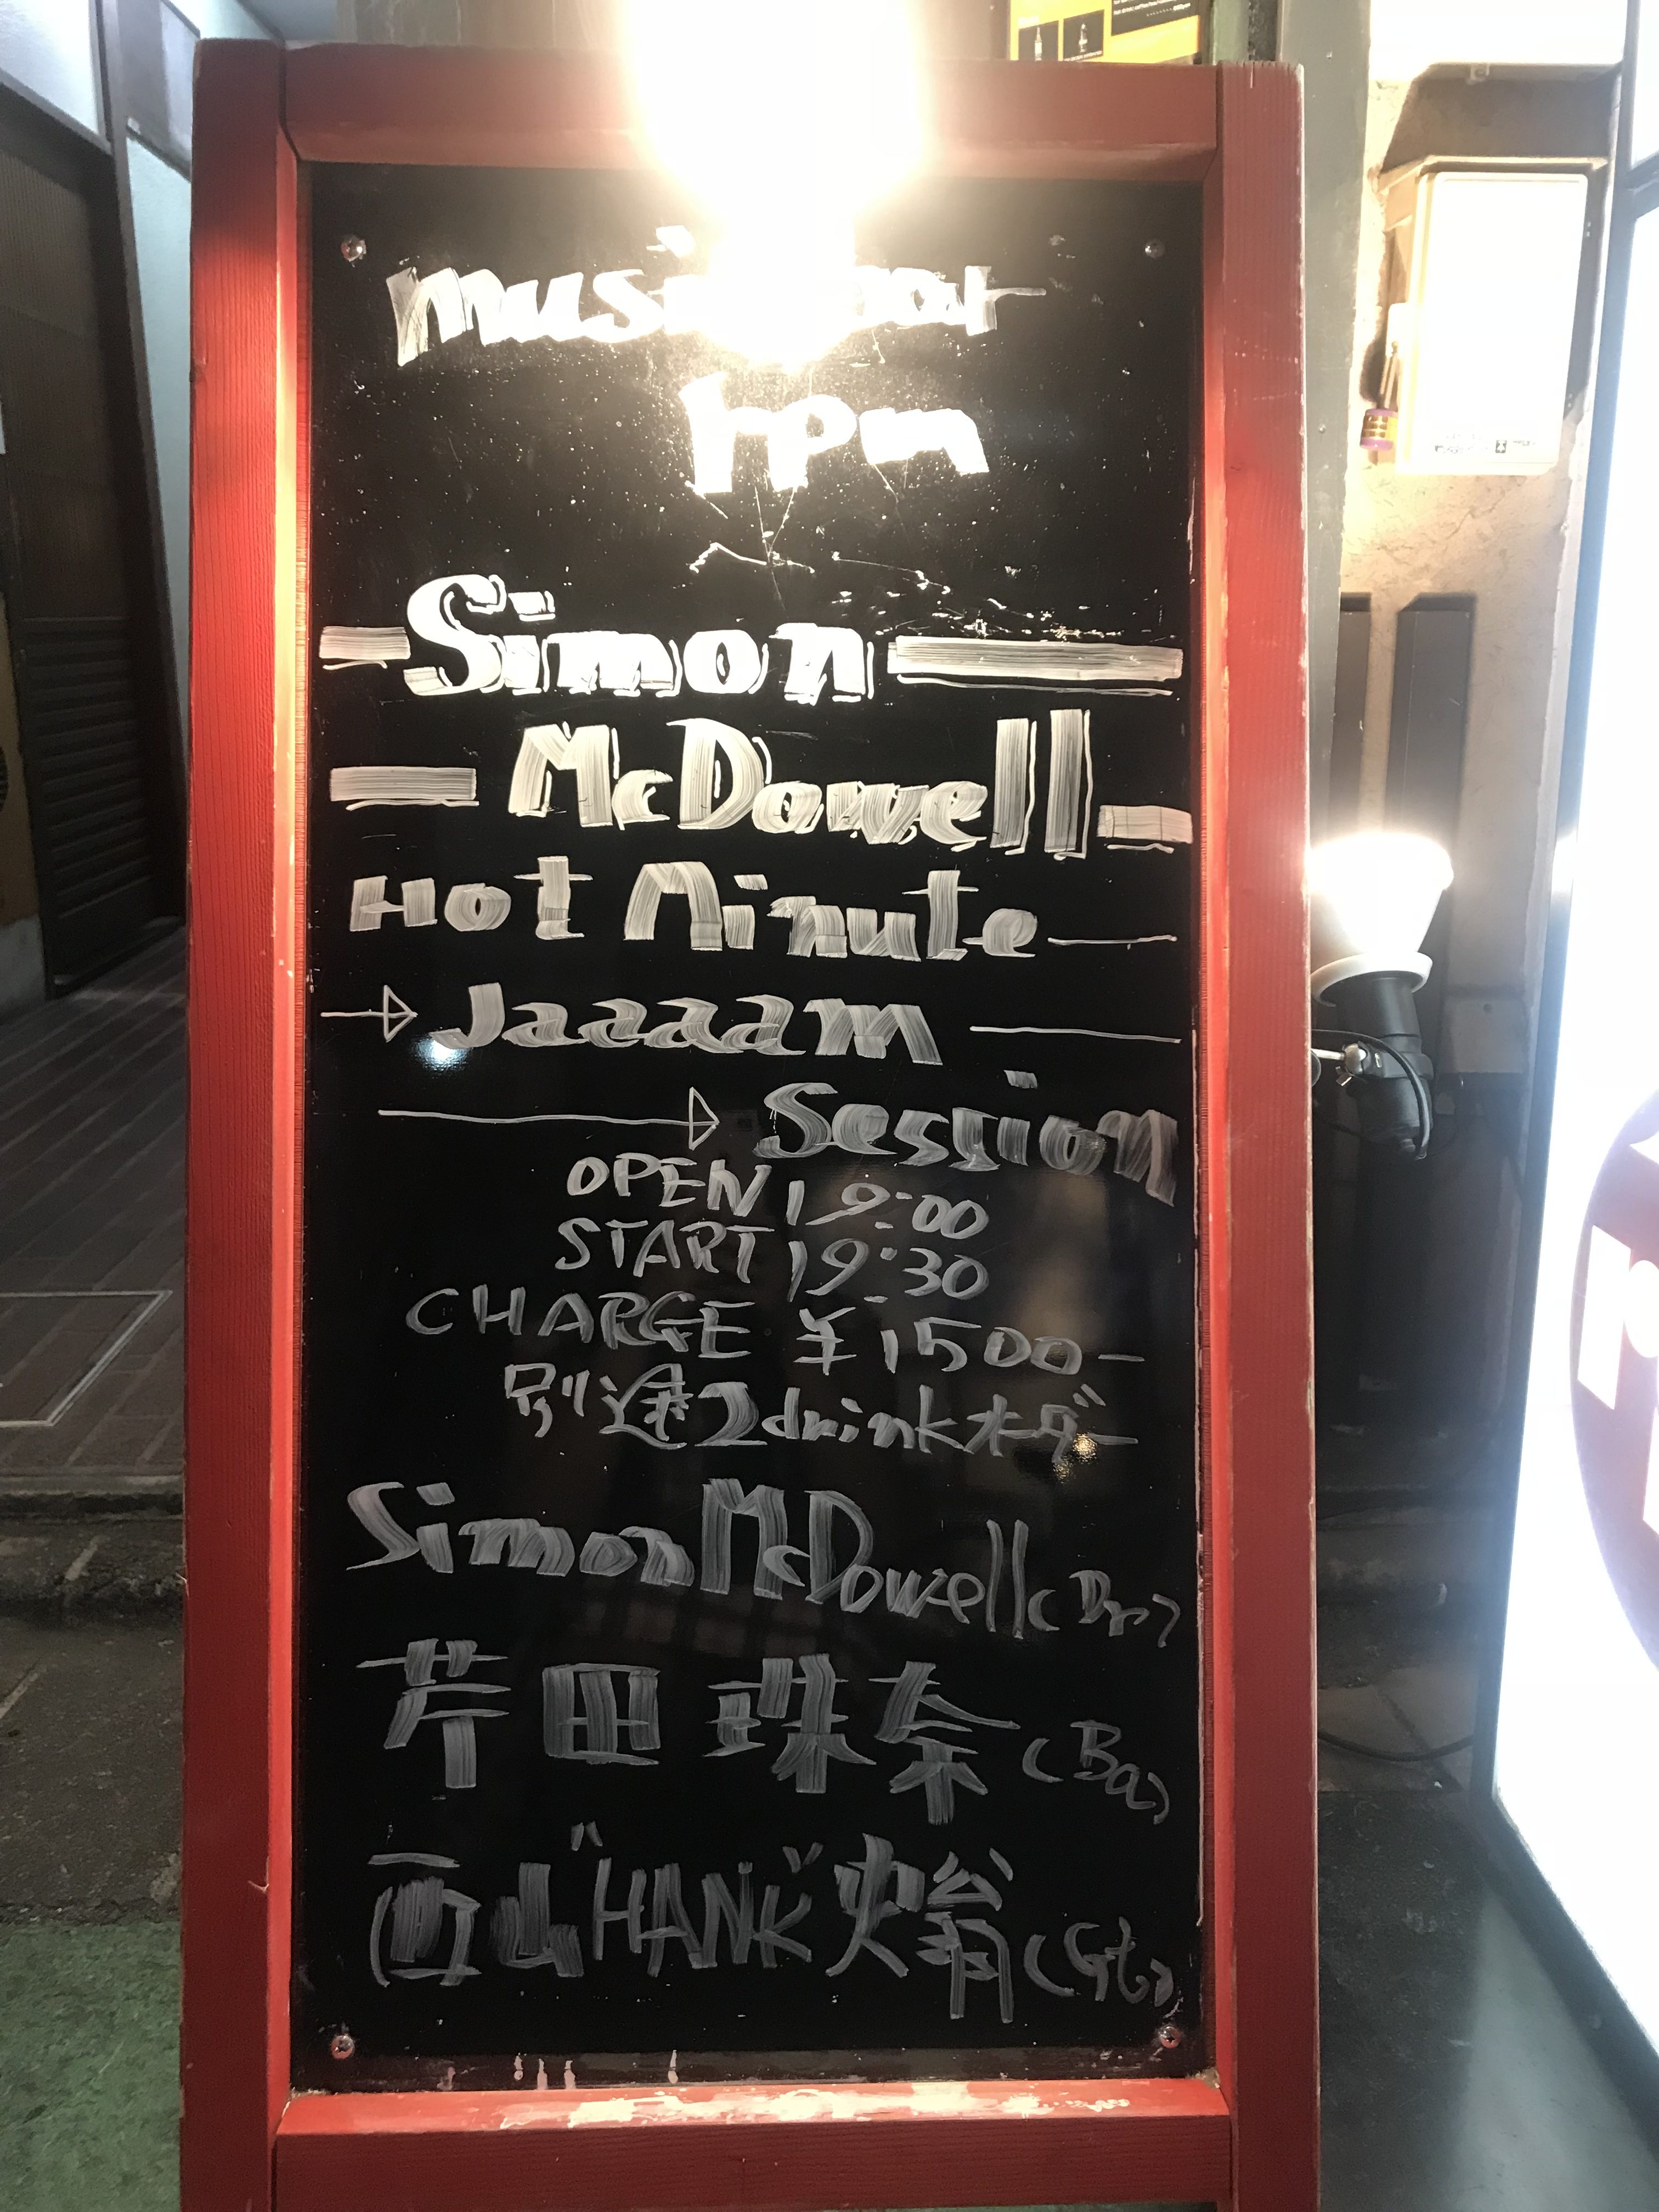 music bar
rpm
Simon
McDowell
Hot Minute
Jaaaaam
Session
OPEN 19:00
START 19:30
CHARGE ¥1500-
別途2drinkオーダー
Simon McDowell(Dr)
芹田珠奈(Ba)
西山"HANK"史翁(Gt)